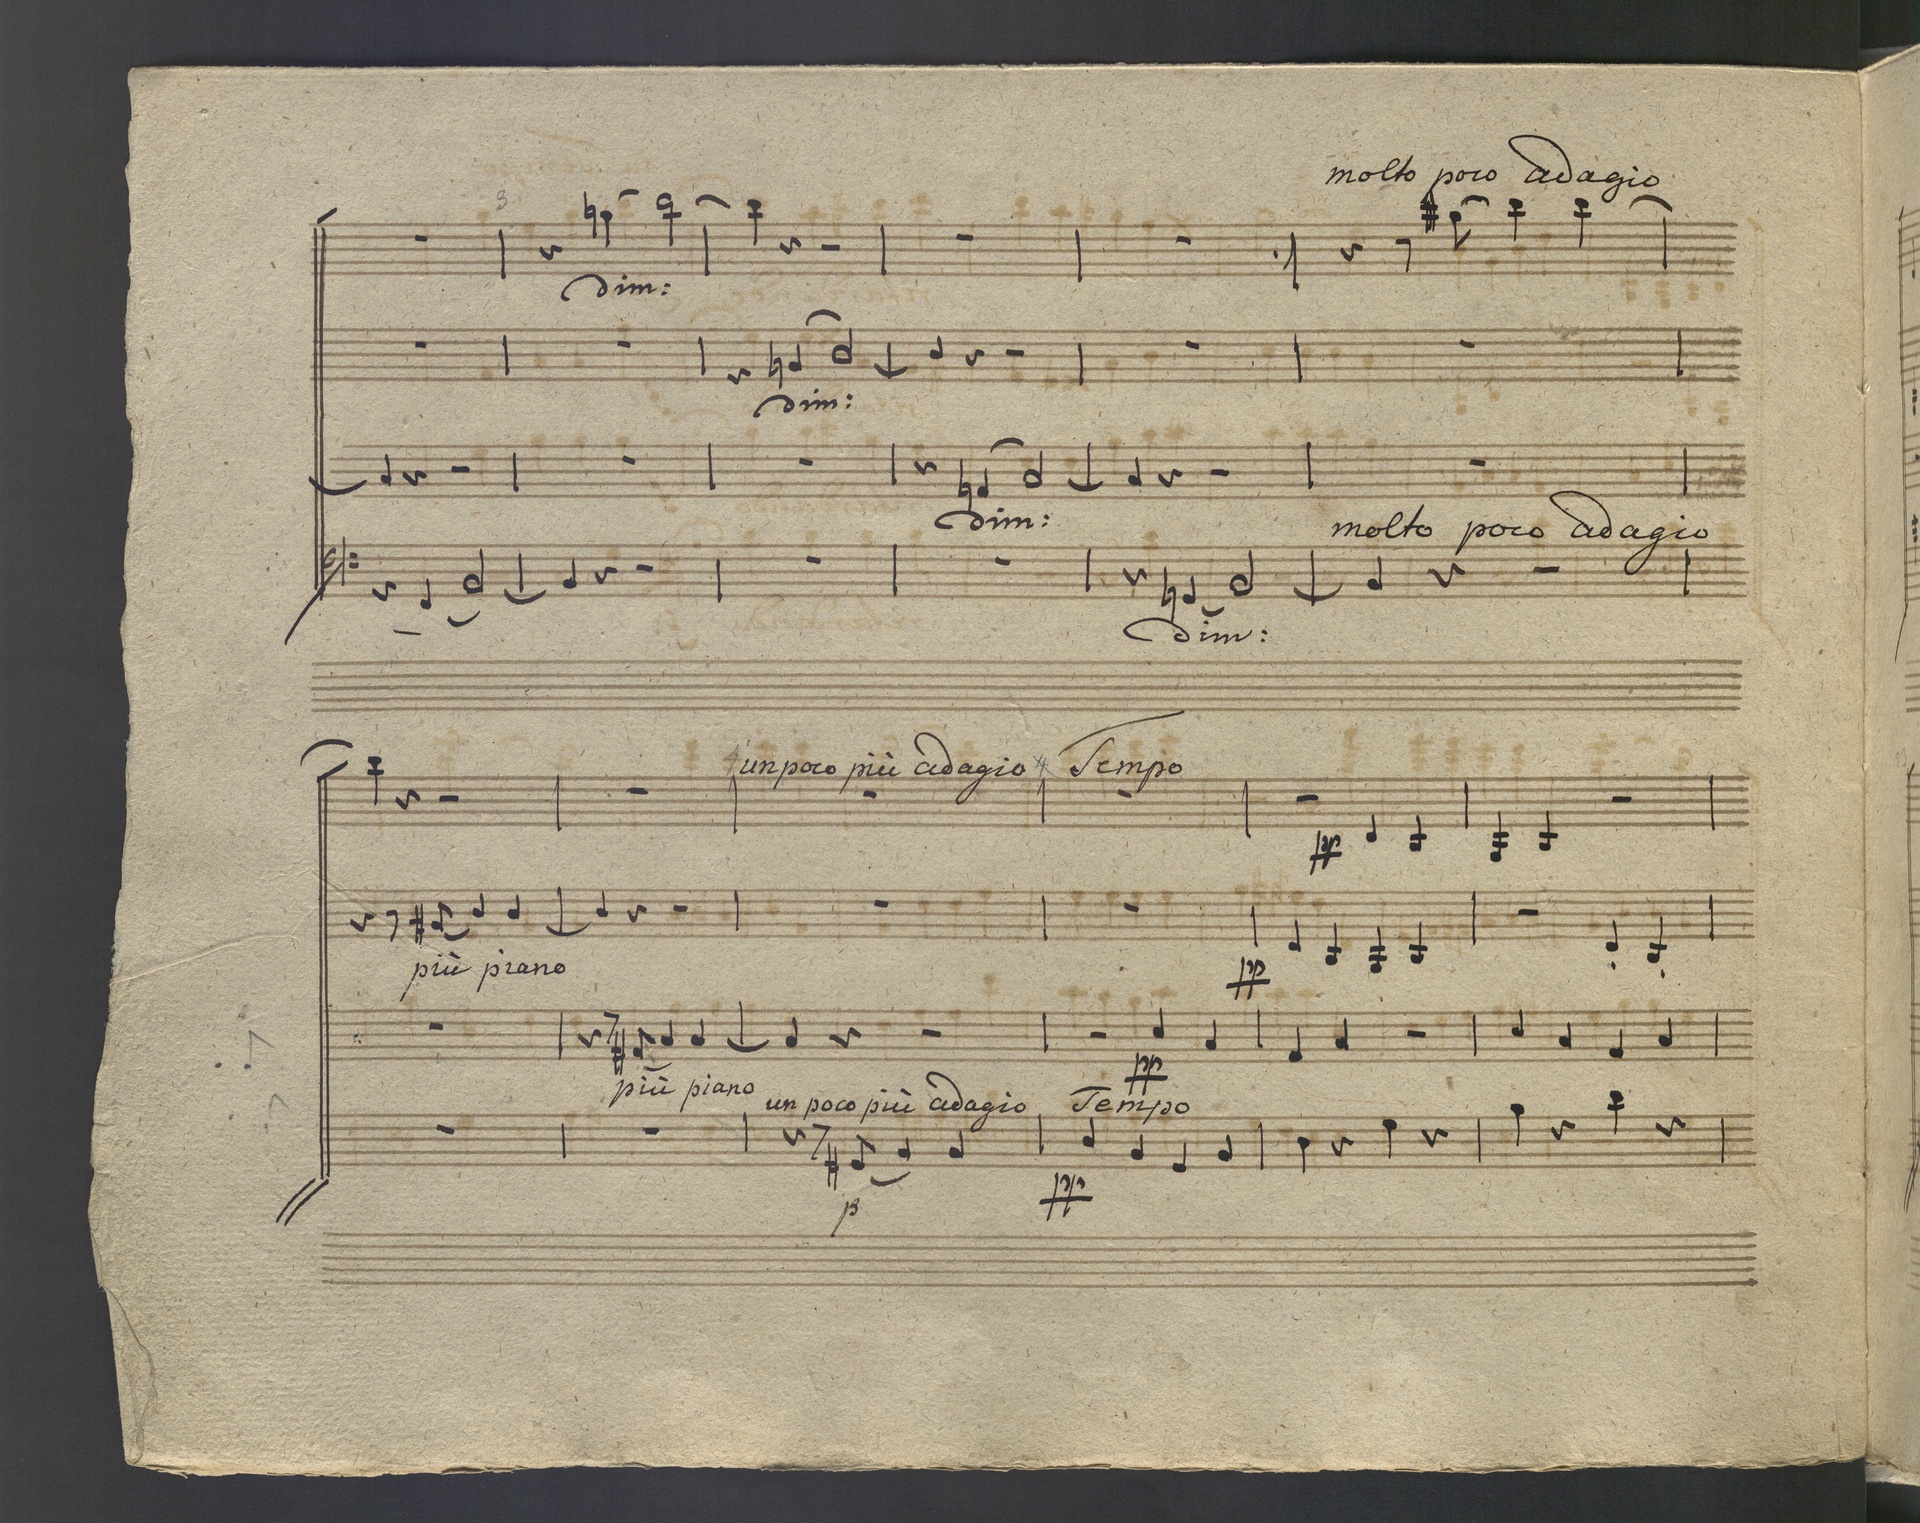 molto poco adagio
3
dim:
dim:
dim:
molto poco adagio
dim:
un poco più adagio 4 Tempo
pp
più piano
pp
pp
più piano
un poco più adagio Tempo
p
pp